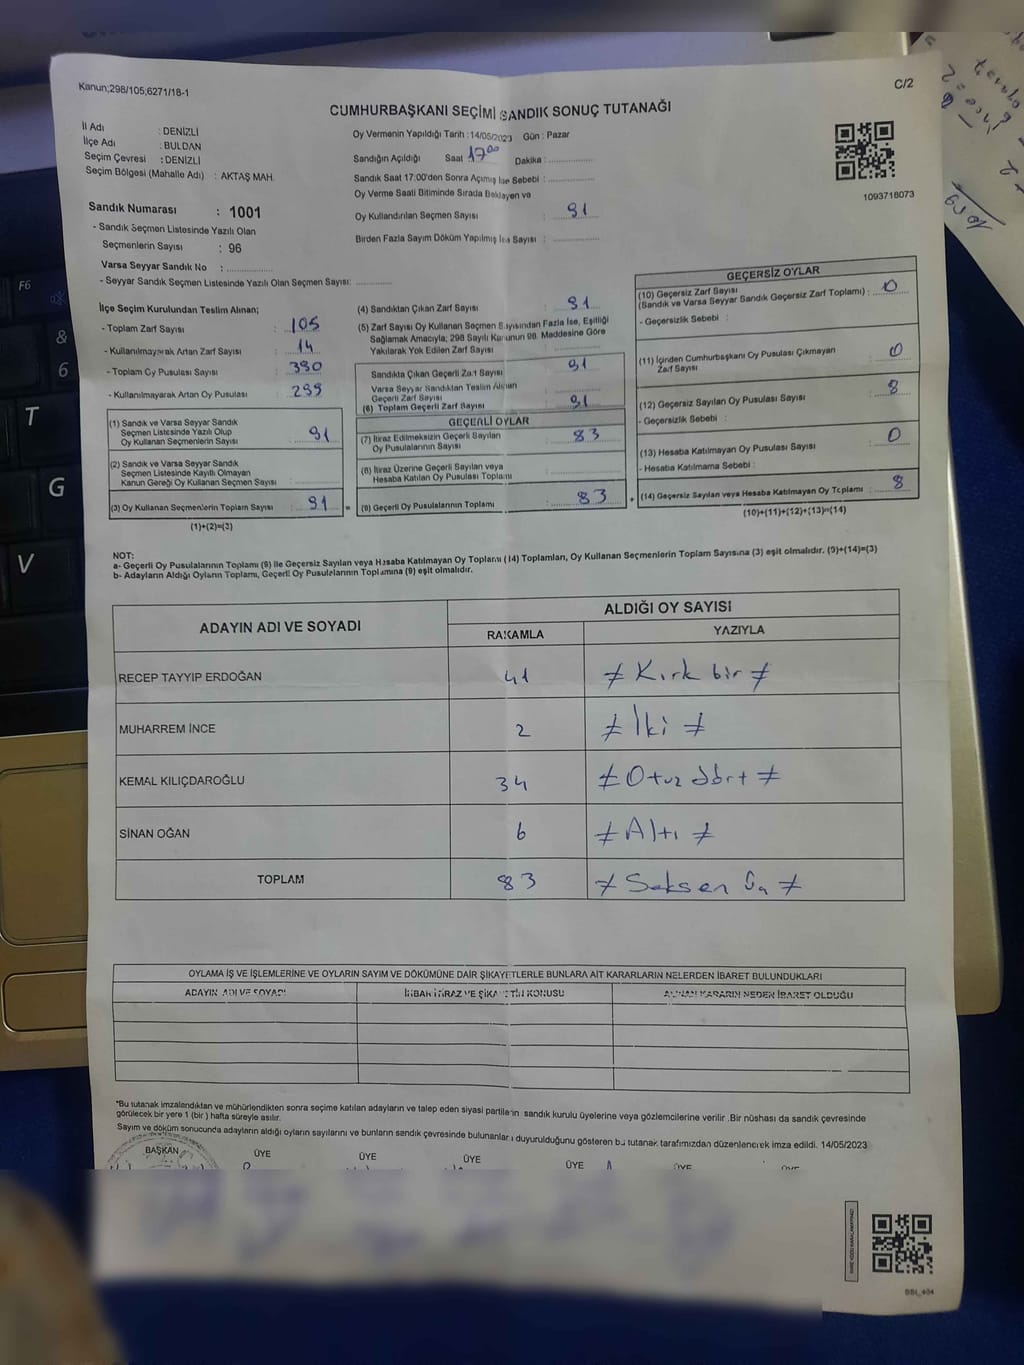 Kanun;298/105;6271/18-1
C/2
CUMHURBAŞKANI SEÇİMİ SANDIK SONUÇ TUTANAĞI
İl Adı : DENİZLİ
İlçe Adı : BULDAN
Seçim Çevresi : DENİZLİ
Seçim Bölgesi (Mahalle Adı) : AKTAŞ MAH.
Oy Vermenin Yapıldığı Tarih : 14/05/2023 Gün : Pazar
Sandığın Açıldığı Saat 17:00 Dakika :
Sandık Saat 17:00'den Sonra Açımış İse Sebebi :
Oy Verme Saati Bitiminde Sırada Bekleyen ve
Oy Kullandırılan Seçmen Sayısı : 91
Birden Fazla Sayım Döküm Yapılmış İse Sayısı :
1093718073
Sandık Numarası : 1001
- Sandık Seçmen Listesinde Yazılı Olan
Seçmenlerin Sayısı : 96
Varsa Seyyar Sandık No :
- Seyyar Sandık Seçmen Listesinde Yazılı Olan Seçmen Sayısı:
İlçe Seçim Kurulundan Teslim Alınan;
- Toplam Zarf Sayısı : 105
- Kullanılmayarak Artan Zarf Sayısı : 14
- Toplam Oy Pusulası Sayısı : 390
- Kullanılmayarak Artan Oy Pusulası : 299
(1) Sandık ve Varsa Seyyar Sandık
Seçmen Listesinde Yazılı Olup
Oy Kullanan Seçmenlerin Sayısı : 91
(2) Sandık ve Varsa Seyyar Sandık
Seçmen Listesinde Kayıtlı Olmayan
Kanun Gereği Oy Kullanan Seçmen Sayısı
(3) Oy Kullanan Seçmenlerin Toplam Sayısı : 91 =
(1)+(2)=(3)
(4) Sandıktan Çıkan Zarf Sayısı : 91
(5) Zarf Sayısı Oy Kullanan Seçmen Sayısından Fazla İse, Eşitliği
Sağlamak Amacıyla; 298 Sayılı Kanunun 98. Maddesine Göre
Yakılarak Yok Edilen Zarf Sayısı :
Sandıkta Çıkan Geçerli Zarf Sayısı : 91
Varsa Seyyar Sandıktan Teslim Alınan
Geçerli Zarf Sayısı
(6) Toplam Geçerli Zarf Sayısı : 91
GEÇERLİ OYLAR
(7) İtiraz Edilmeksizin Geçerli Sayılan
Oy Pusulalarının Sayısı : 83
(8) İtiraz Üzerine Geçerli Sayılan veya
Hesaba Katılan Oy Pusulası Toplamı
(9) Geçerli Oy Pusulalarının Toplamı : 83 +
GEÇERSİZ OYLAR
(10) Geçersiz Zarf Sayısı
(Sandık ve Varsa Seyyar Sandık Geçersiz Zarf Toplamı) : 0
- Geçersizlik Sebebi :
(11) İçinden Cumhurbaşkanı Oy Pusulası Çıkmayan
Zarf Sayısı 0
(12) Geçersiz Sayılan Oy Pusulası Sayısı 8
- Geçersizlik Sebebi :
(13) Hesaba Katılmayan Oy Pusulası Sayısı 0
- Hesaba Katılmama Sebebi :
(14) Geçersiz Sayılan veya Hesaba Katılmayan Oy Toplamı : 8
(10)+(11)+(12)+(13)=(14)
NOT:
a- Geçerli Oy Pusulalarının Toplamı (9) ile Geçersiz Sayılan veya Hesaba Katılmayan Oy Toplamı (14) Toplamları, Oy Kullanan Seçmenlerin Toplam Sayısına (3) eşit olmalıdır. (9)+(14)=(3)
b- Adayların Aldığı Oyların Toplamı, Geçerli Oy Pusulalarının Toplamına (9) eşit olmalıdır.
ADAYIN ADI VE SOYADI
ALDIĞI OY SAYISI
RAKAMLA
YAZIYLA
RECEP TAYYIP ERDOĞAN 41 ≠ Kırk bir ≠
MUHARREM İNCE 2 ≠ İki ≠
KEMAL KILIÇDAROĞLU 34 ≠ Otuz dört ≠
SİNAN OĞAN 6 ≠ Altı ≠
TOPLAM 83 ≠ Seksen Üç ≠
OYLAMA İŞ VE İŞLEMLERİNE VE OYLARIN SAYIM VE DÖKÜMÜNE DAİR ŞİKAYETLERLE BUNLARA AİT KARARLARIN NELERDEN İBARET BULUNDUKLARI
ADAYIN ADI VE SOYADI
İHBAR İTİRAZ VE ŞİKAYETİN KONUSU
ALINAN KARARIN NEDEN İBARET OLDUĞU
*Bu tutanak imzalandıktan ve mühürlendikten sonra seçime katılan adayların ve talep eden siyasi partilerin sandık kurulu üyelerine veya gözlemcilerine verilir .Bir nüshası da sandık çevresinde
görülecek bir yere 1 (bir ) hafta süreyle asılır.
Sayım ve döküm sonucunda adayların aldığı oyların sayılarını ve bunların sandık çevresinde bulunanlara duyurulduğunu gösteren bu tutanak tarafımızdan düzenlenerek imza edildi. 14/05/2023
BAŞKAN ÜYE ÜYE ÜYE ÜYE ÜYE ÜYE
F6
&
6
T
G
V